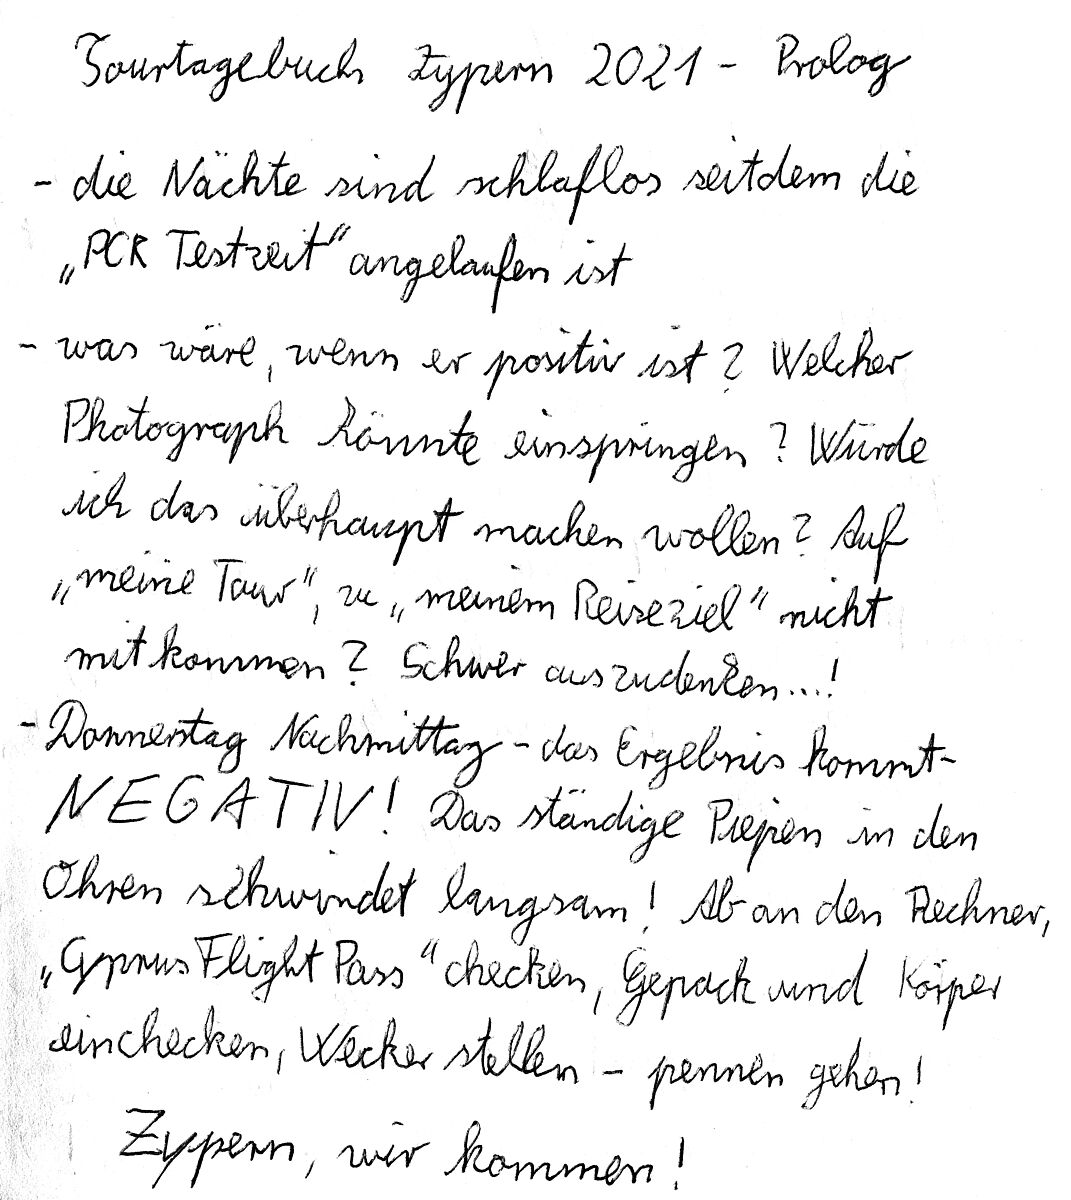 Tourtagebuch Zypern 2021 - Prolog
- die Nächte sind schlaflos seitdem die
„PCR Testzeit" angelaufen ist
- was wäre, wenn er positiv ist? Welcher
Photograph könnte einspringen? Würde
ich das überhaupt machen wollen? Auf
„meine Tour", zu „meinem Reiseziel" nicht
mitkommen? Schwer auszudenken...!
- Donnerstag Nachmittag - das Ergebnis kommt-
NEGATIV! Das ständige Piepen in den
Ohren schwindet langsam! Ab an den Rechner,
„Cyprus Flight Pass" checken, Gepäck und Körper
einchecken, Wecker stellen - pennen gehen!
Zypern, wir kommen!